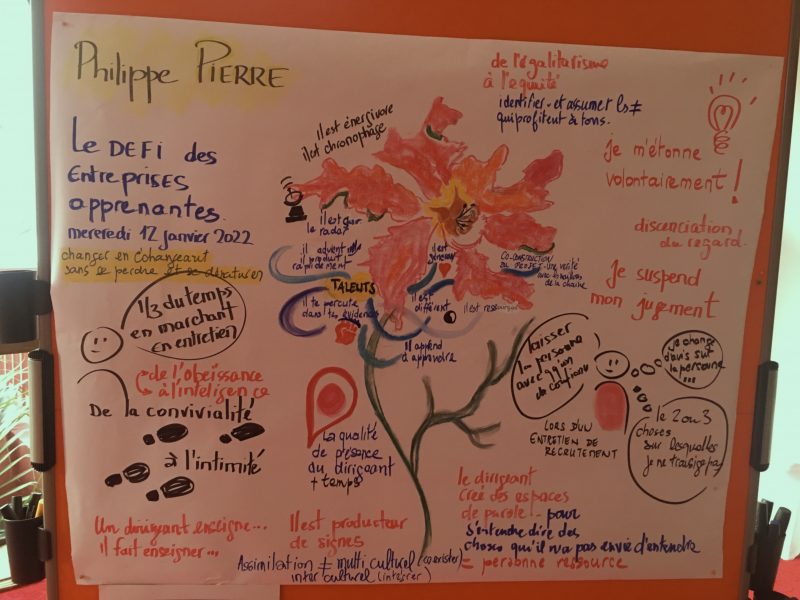 Philippe PIERRE
Le DEFI des
Entreprises
apprenantes.
mercredi 12 janvier 2022
changer en échangeant
sans se perdre et se dénaturer
1/3 du temps
en marchant
en entretien
de l'obeissance
à l'intelligence
De la convivialité
à l'intimité
Un dirigeant enseigne...
il fait enseigner...
il est énergivore
il est chronophage
il est sur
le radar
il advient
il produit
rapidement
TALENTS
il te percute
dans tes évidences
il est
généreux
il est
différent
il est
il apprend
à apprendre
CO-CONSTRUCTION
DU PROJET - une vérité
avec
de la chaine
La qualité
de présence
du dirigeant
+ temps
Il est producteur
de signes
Assimilation ≠ multi culturel (coexister)
inter culturel (intégrer)
de l'égalitarisme
à l'équité
identifier et assumer les ≠
qui profitent à tous.
je m'étonne
volontairement !
discenciation
du regard.
Je suspend
mon jugement
laisser
la personne
avec
de confiance
LORS D'UN
ENTRETIEN DE
RECRUTEMENT
je change
d'avis sur
la personne
...
le 2 ou 3
choses
sur lesquelles
je ne transige pas
le dirigeant
créé des espaces
de parole! - pour
s'entendre dire des
choses qu'il n'a pas envie d'entendre
= personne ressource